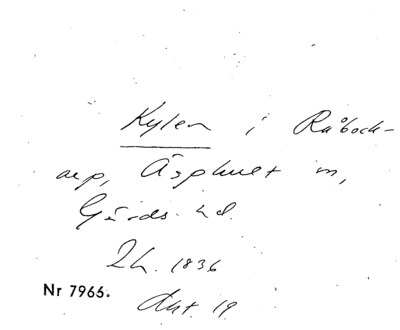 Kylen i Råbock-
arp, Äsphult sn,
Gärds hd.
Lh. 1836
Nr 7966.
Akt. 19